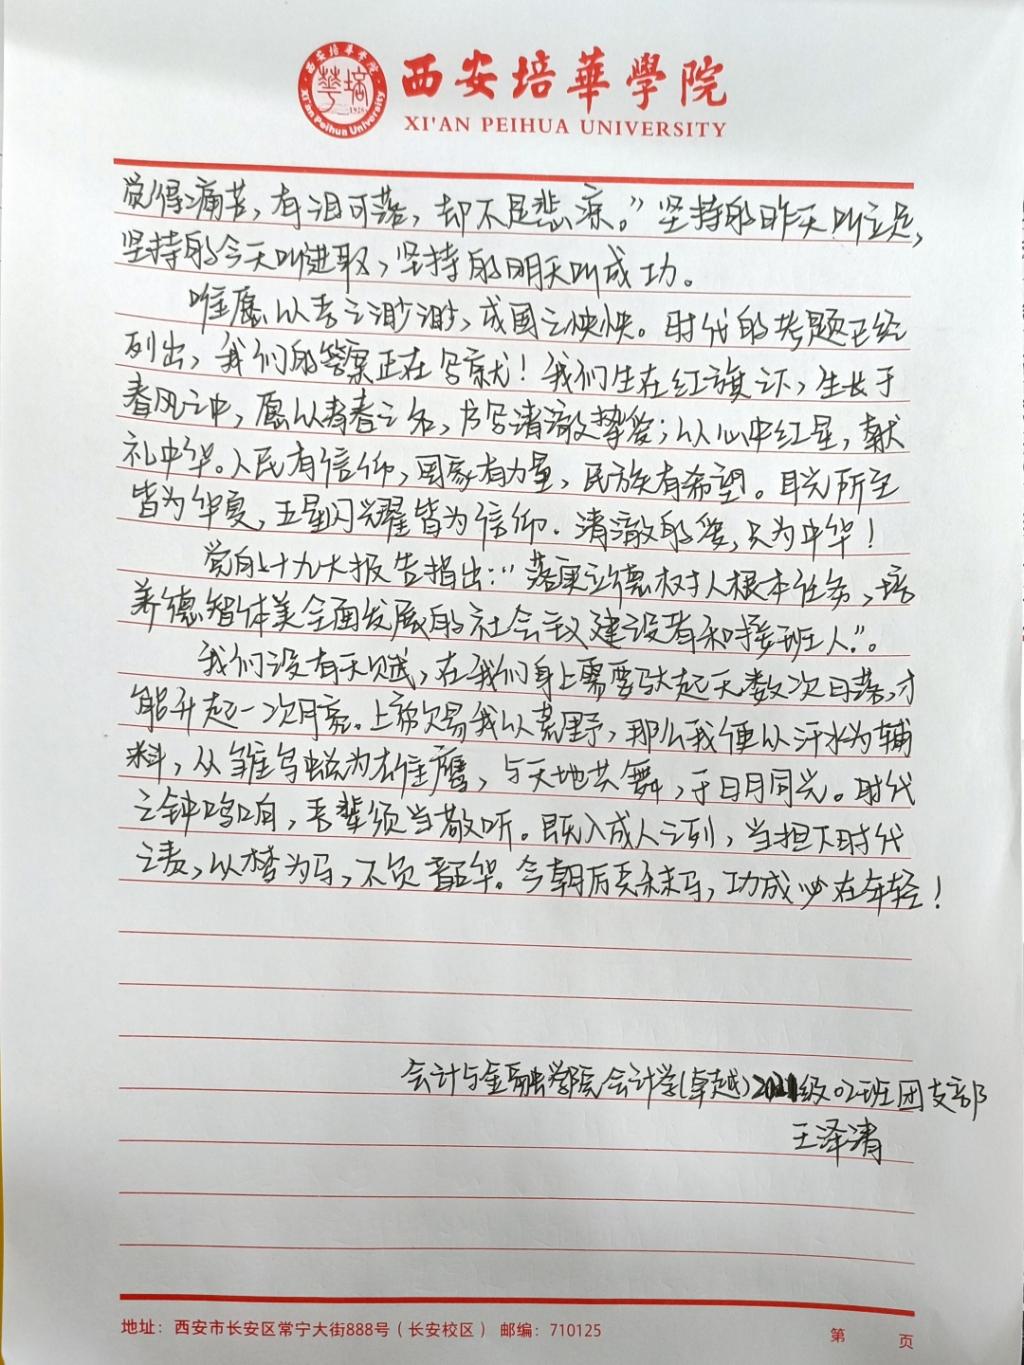 西安培華學院
XI'AN PEIHUA UNIVERSITY
觉得痛苦，有泪可落，却不是悲凉。”坚持的昨天叫立足，
坚持的今天叫进取，坚持的明天叫成功。
唯愿以吾之渺渺，成国之泱泱。时代的考题已经
列出，我们的答案正在写就！我们生在红旗下，生长于
春风中，愿以青春之名，书写清澈挚爱；以心中红星，献
礼中华。人民有信仰，国家有力量，民族有希望。目光所至
皆为华夏，五星闪耀皆为信仰．清澈的爱，只为中华！
党的十九大报告指出：“落实立德树人根本任务，培
养德智体美全面发展的社会主义建设者和接班人”。
我们没有天赋，在我们身上需要驮起无数次日落，才
能升起一次月亮。上帝欠易我以荒野，那么我便以汗水为辅
料，从雏鸟蜕为雄鹰，与天地共舞，于日月同光。时代
之钟鸣响，吾辈须当敬听。既入成人之列，当担下时代
之责，以梦为马，不负韶华。今朝厉兵秣马，功成必在年轻！
会计与金融学院会计学(卓越)2021级02班团支部
王泽清
地址：西安市长安区常宁大街888号（长安校区） 邮编：710125
第 页
西安培华学院
培華
1928
Xi'an Peihua University